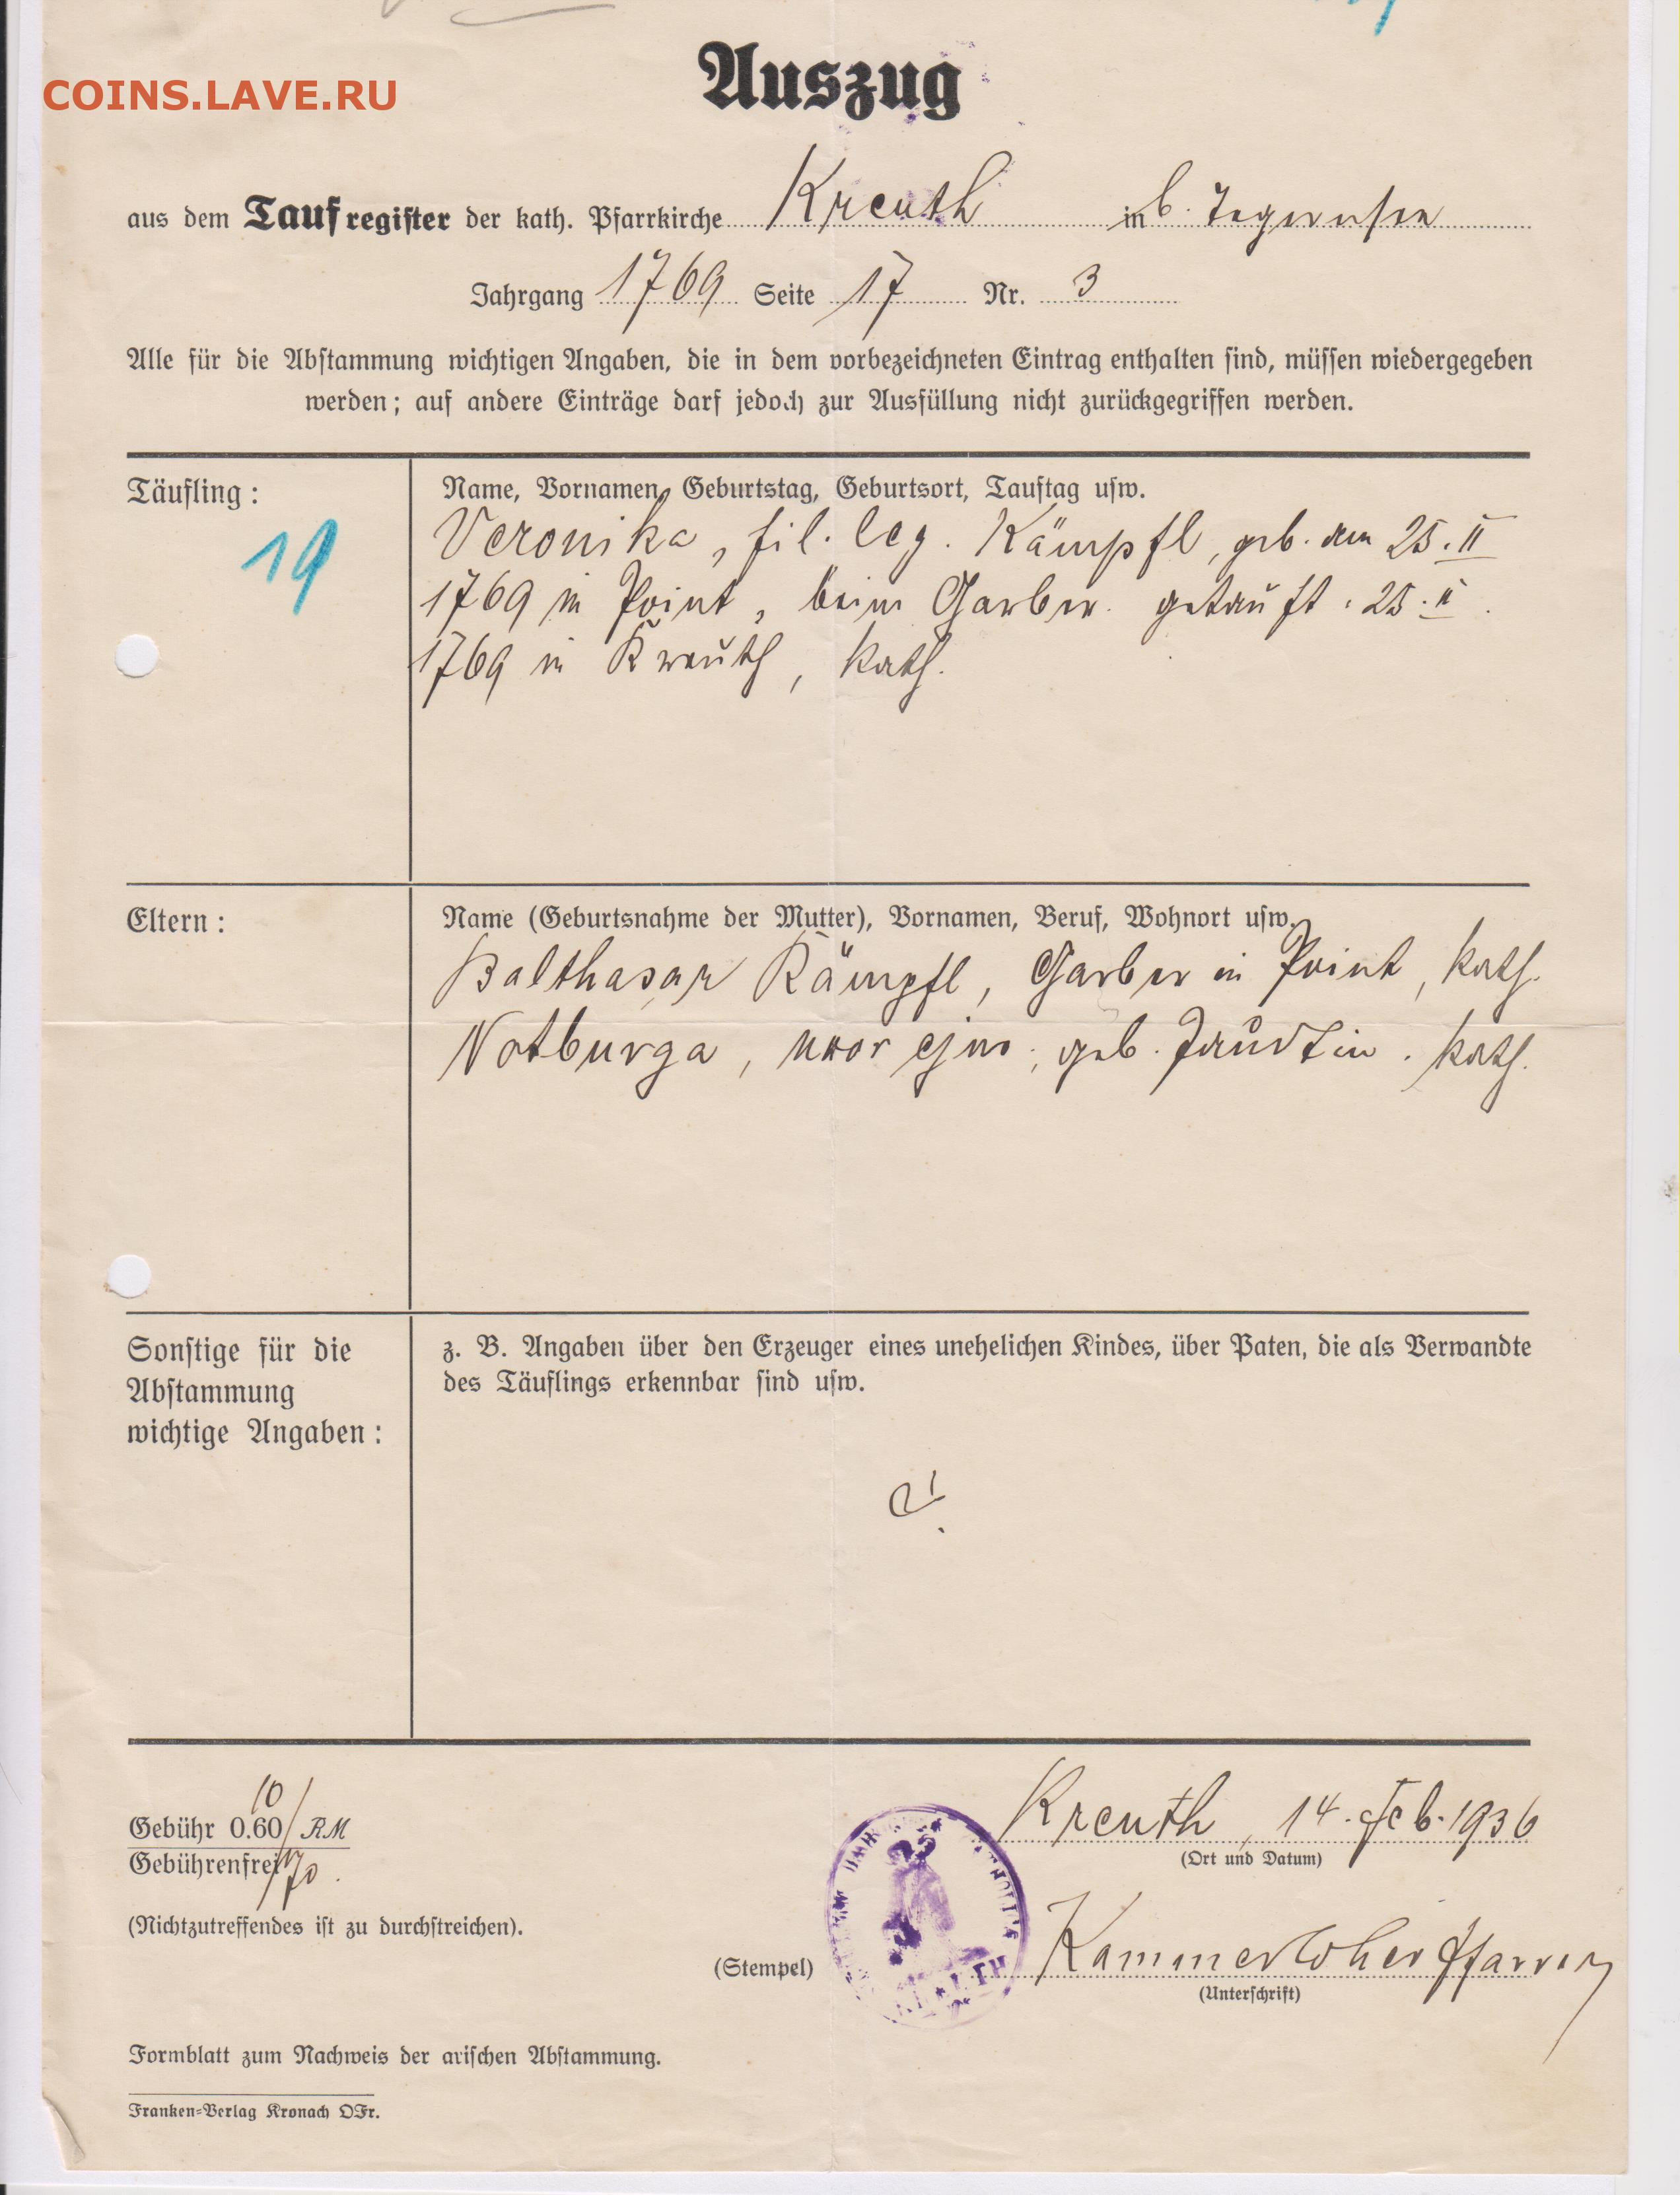 COINS.LAVE.RU
Auszug
aus dem Taufregister der kath. Pfarrkirche Kreuth in b. Tegernsee
Jahrgang 1769 Seite 17 Nr. 3
Alle für die Abstammung wichtigen Angaben, die in dem vorbezeichneten Eintrag enthalten sind, müssen wiedergegeben
werden; auf andere Einträge darf jedoch zur Ausfüllung nicht zurückgegriffen werden.
Täufling:
19
Name, Vornamen, Geburtstag, Geburtsort, Tauftag usw.
Veronika, fil. leg. Kämpfl, geb. am 25. II
1769 in Point, beim Garber. getauft. 25. II.
1769 in Kreuth, kath.
Eltern:
Name (Geburtsnahme der Mutter), Vornamen, Beruf, Wohnort usw.
Balthasar Kämpfl, Garber in Point, kath.
Notburga, uxor ejus, geb. kath.
Sonstige für die
Abstammung
wichtige Angaben:
z. B. Angaben über den Erzeuger eines unehelichen Kindes, über Paten, die als Verwandte
des Täuflings erkennbar sind usw.
10
Gebühr 0.60 RM
Gebührenfrei
70.
(Nichtzutreffendes ist zu durchstreichen).
Kreuth, 14. Feb. 1936
(Ort und Datum)
(Stempel)
Kammerloher Pfarrer
(Unterschrift)
Formblatt zum Nachweis der arischen Abstammung.
Franken-Verlag Kronach OFr.